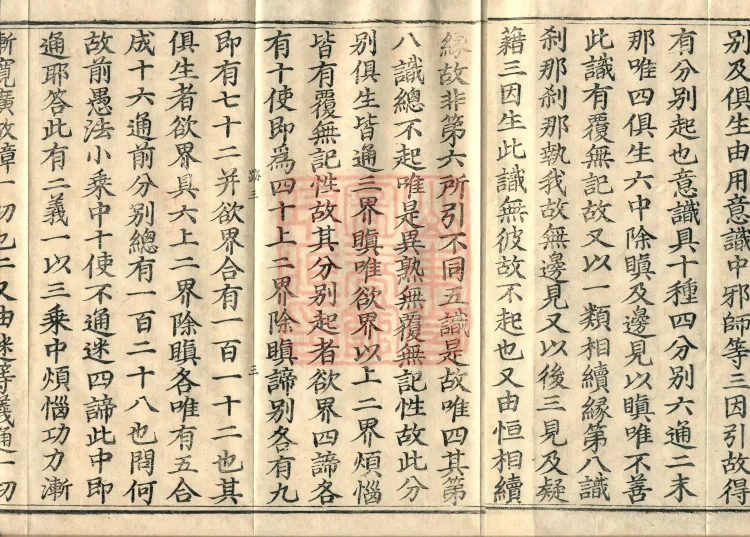 別及俱生由用意識中邪師等三因引故得
有分別起也意識具十種四分別六通二末
那唯四俱生六中除瞋及邊見以瞋唯不善
此識有覆無記故又以一類相續緣第八識
刹那刹那執我故無邊見又以後三見及疑
籍三因生此識無彼故不起也又由恒相續
緣故非第六所引不同五識是故唯四其第
八識總不起唯是異熟無覆無記性故此分
別俱生皆通三界瞋唯欲界以上二界煩惱
皆有覆無記性故其分別起者欲界四諦各
有十使即爲四十上二界除瞋諦別各有九
跡三 三
即有七十二并欲界合有一百一十二也其
俱生者欲界具六上二界除瞋各唯有五合
成十六通前分別總有一百二十八也問何
故前愚法小乘中十使不通迷四諦此中即
通耶答此有二義一以三乘中煩惱功力漸
漸寬廣故障一切也二又由迷等義通一切